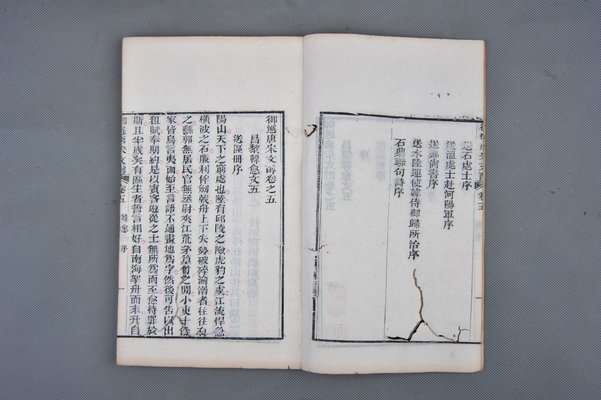 送石處士序
送溫處士赴河陽軍序
送鄭尚書序
送水陸運使韓侍御歸所治序
石鼎聯句詩序
御選唐宋文醇卷之五
昌黎韓愈文五
送區册序
陽山天下之窮處也陸有邱陵之險虎豹之虞江流悍急
橫波之石廉利侔劍戟舟上下失勢破碎淪溺者往往有
之縣郭無居民官無丞尉夾江荒茅篁竹之間小吏十餘
家皆鳥言夷面始至言語不通畫地為字然後可告以出
租賦奉期約是以賓客遊從之士無所為而至愈待罪於
斯且半歲矣有區生者誓言相好自南海挐舟而來升自